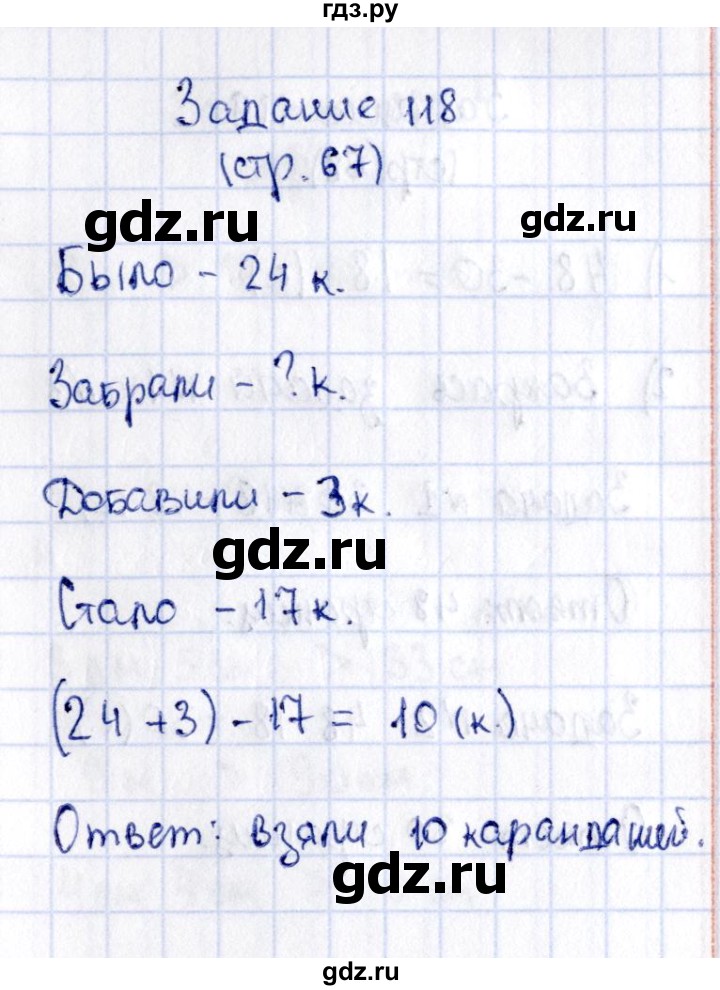 гдз.ру
Задание 118
(стр. 67)
gdz.ru
gdz.ru
Было - 24 к.
Забрали - ? к.
Добавили - 3 к.
gdz.ru
Стало - 17 к.
(24 + 3) - 17 = 10 (к)
Ответ: взяли 10 карандашей.
gdz.ru
gdz.ru